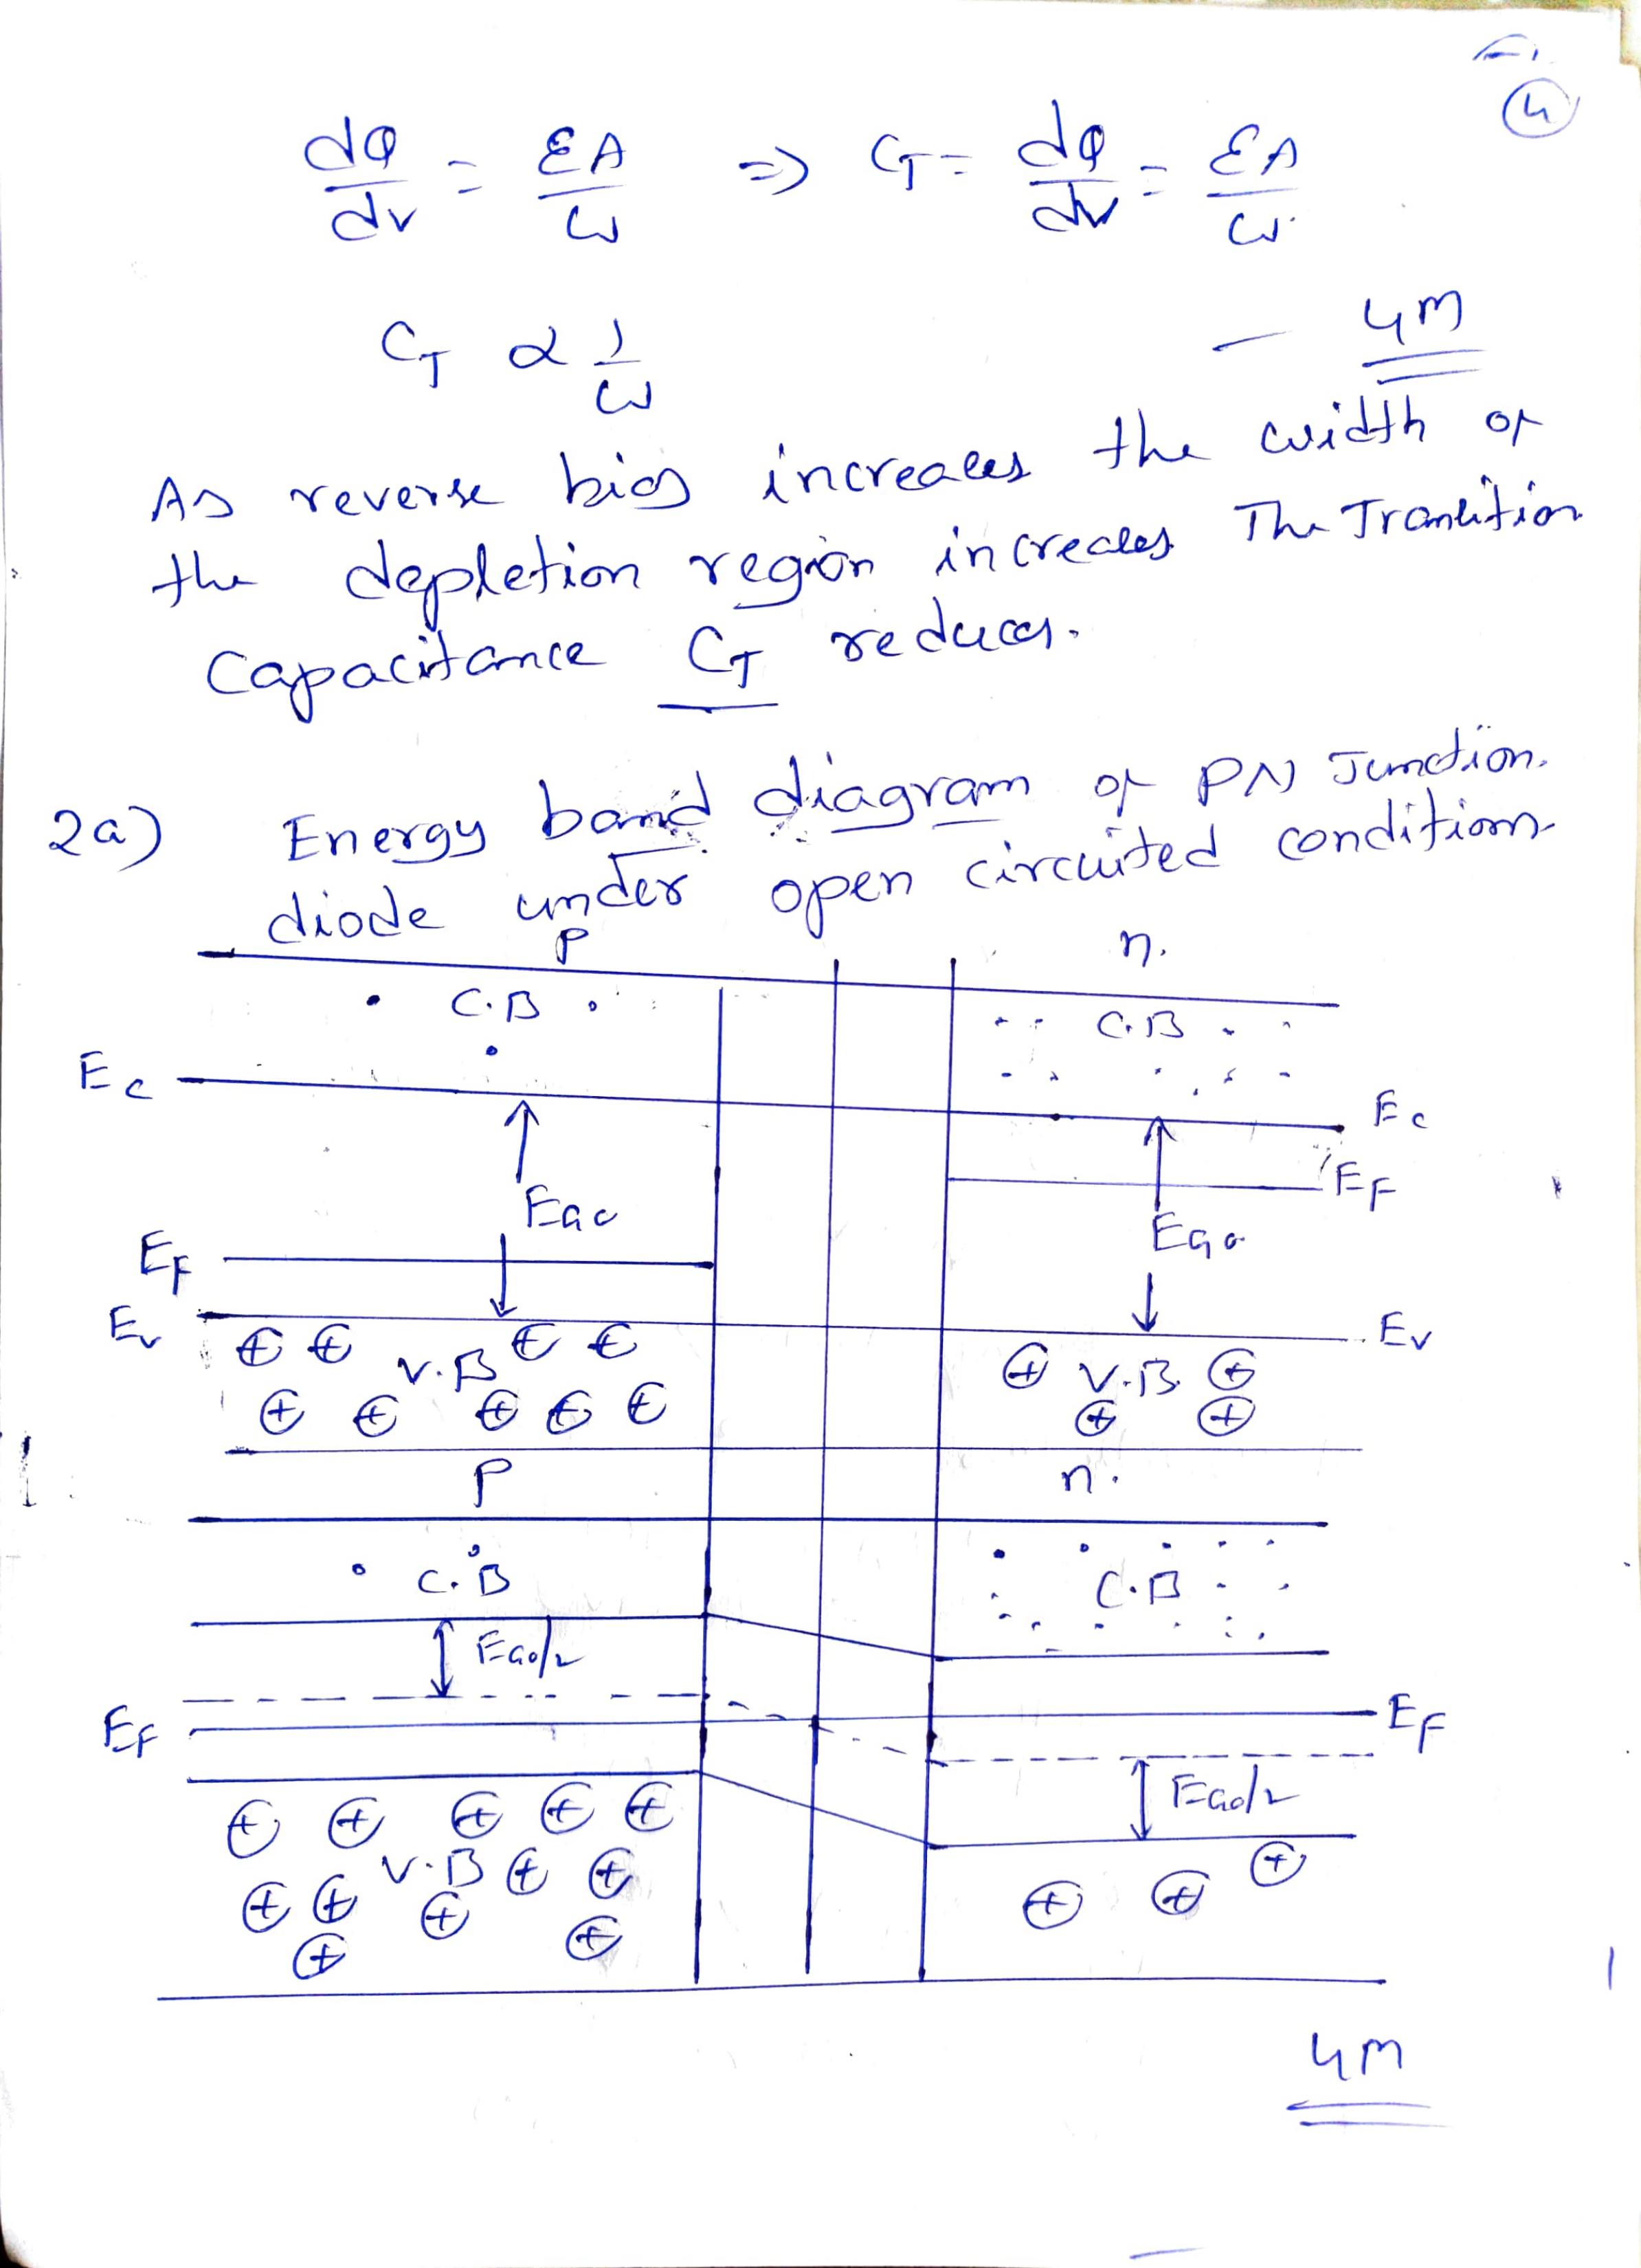 4
dQ/dv = εA/W ⇒ CT = dQ/dv = εA/W
CT α 1/W
— 4M
As reverse bias increases the width of
the depletion region increases The Transition
Capacitance CT reduces.
2a) Energy band diagram of PN Junction
diode under open circuited condition
P n.
C.B C.B
Ec Ec
EF
EG0 EG0
EF
Ev Ev
V.B V.B
P n.
C.B C.B
EG0/2
EF EF
EG0/2
V.B
4M